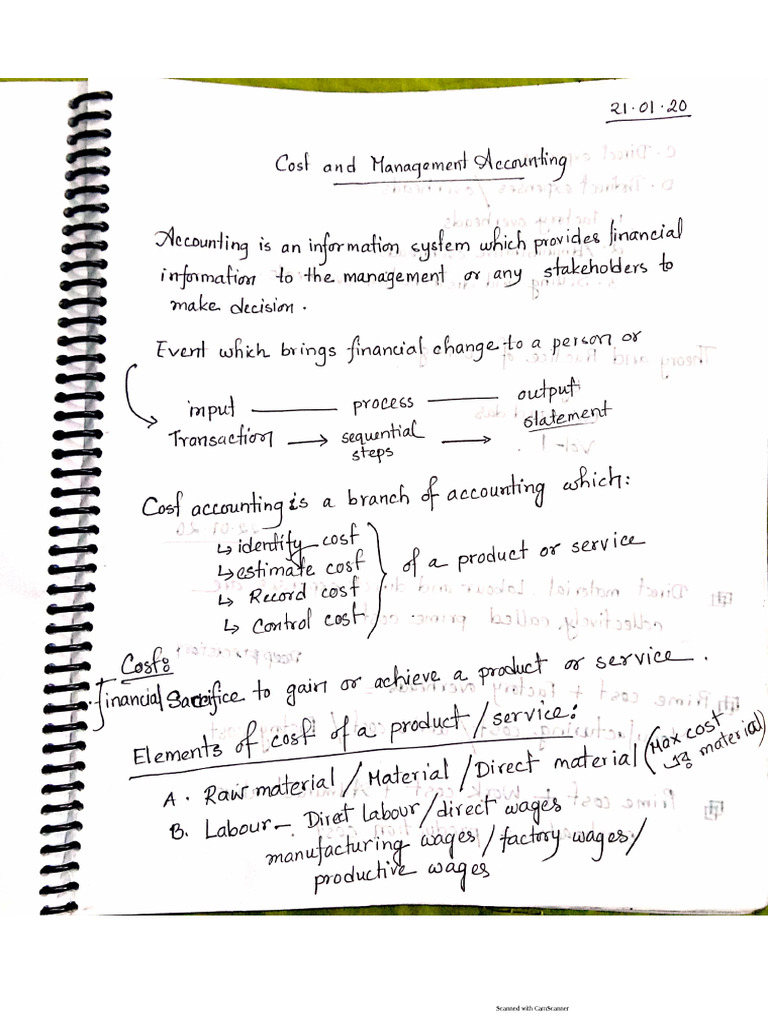 21.01.20
Cost and Management Accounting
Accounting is an information system which provides financial
information to the management or any stakeholders to
make decision.
Event which brings financial change to a person or
input — process — output
Transaction → sequential steps → statement
Cost accounting is a branch of accounting which:
↳ identify cost
↳ estimate cost
↳ Record cost
↳ control cost
of a product or service
Cost:
financial Sacrifice to gain or achieve a product or service.
Elements of cost of a product/service:
A. Raw material/Material/Direct material (Max cost material)
B. Labour – Direct labour/direct wages
manufacturing wages/factory wages/
productive wages
Scanned with CamScanner